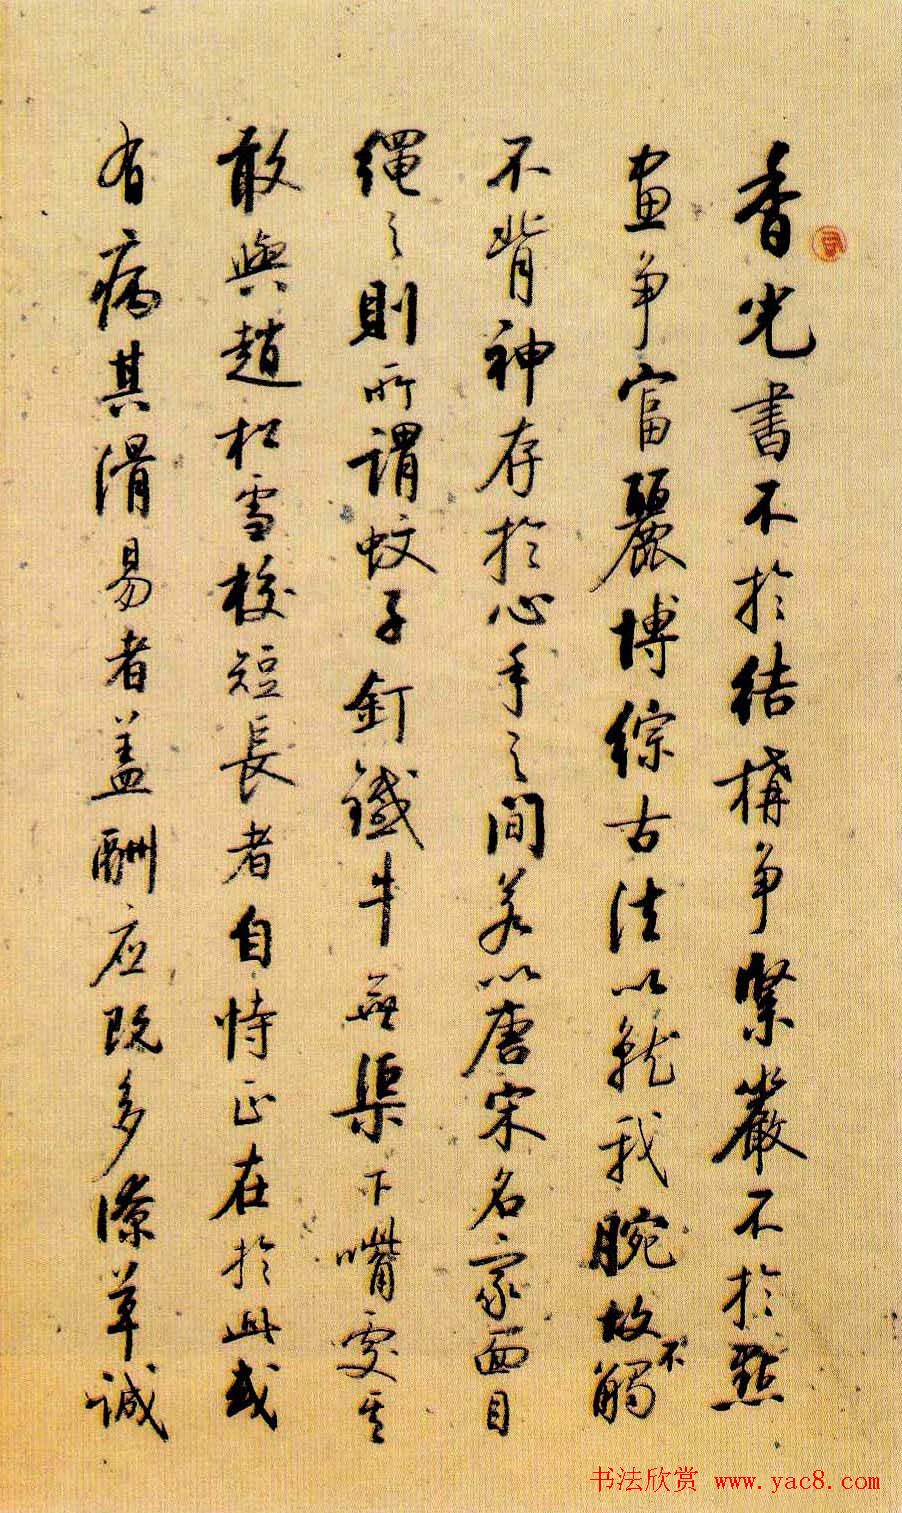 香光書不於結構争緊嚴不於點
画争富麗博綜古法以就我腕故不觸
不背神存於心手之間若以唐宋名家面目
繩之則所謂蚊子釘鐵牛無渠下嘴處其
敢與趙松雪校短長者自恃正在於此或
有病其滑易者盖酬应既多潦草誠
书法欣赏 www.yac8.com